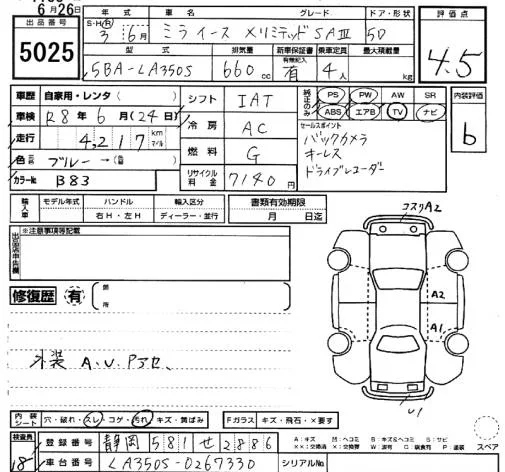 6月26日
出品番号
5025
年式 車名 グレード ドア・形状
S・H・R 3 6月 ミライース X リミテッド SAⅢ 5D
型式 排気量 新車保証書 有無記入 乗車定員 最大積載量
5BA-LA350S 660cc 有 4人 kg
評価点
4.5
車歴 自家用・レンタ( )
車検 R8年6月(24日)
走行 4,217 km マイル
色 ブルー→(色 )
カラーNo. B83
シフト IAT
冷房 AC
燃料 G
リサイクル料金 7140円
純正のみ PS PW AW SR
ABS エアB TV ナビ
セールスポイント
バックカメラ
キーレス
ドライブレコーダー
内装評価
b
輸入車 モデル年式 ハンドル 輸入区分
右H・左H ディーラー・並行
書類有効期限
月 日迄
※注意事項等記載
出品店申告欄
修復歴 有 箇所
外装 A.U.Pアセ、
コスリA2
A2
A1
U1
内装シート 穴・破れ・スレ・コゲ・汚れ・キズ・黄ばみ
Fガラス キズ・飛石・×要す
検査員
18
登録番号 静岡 581 せ 2886
車台番号 LA350S-0267330
シリアルNo.
A:キズ M:ヘコミ B:キズ&ヘコミ S:サビ
スペア